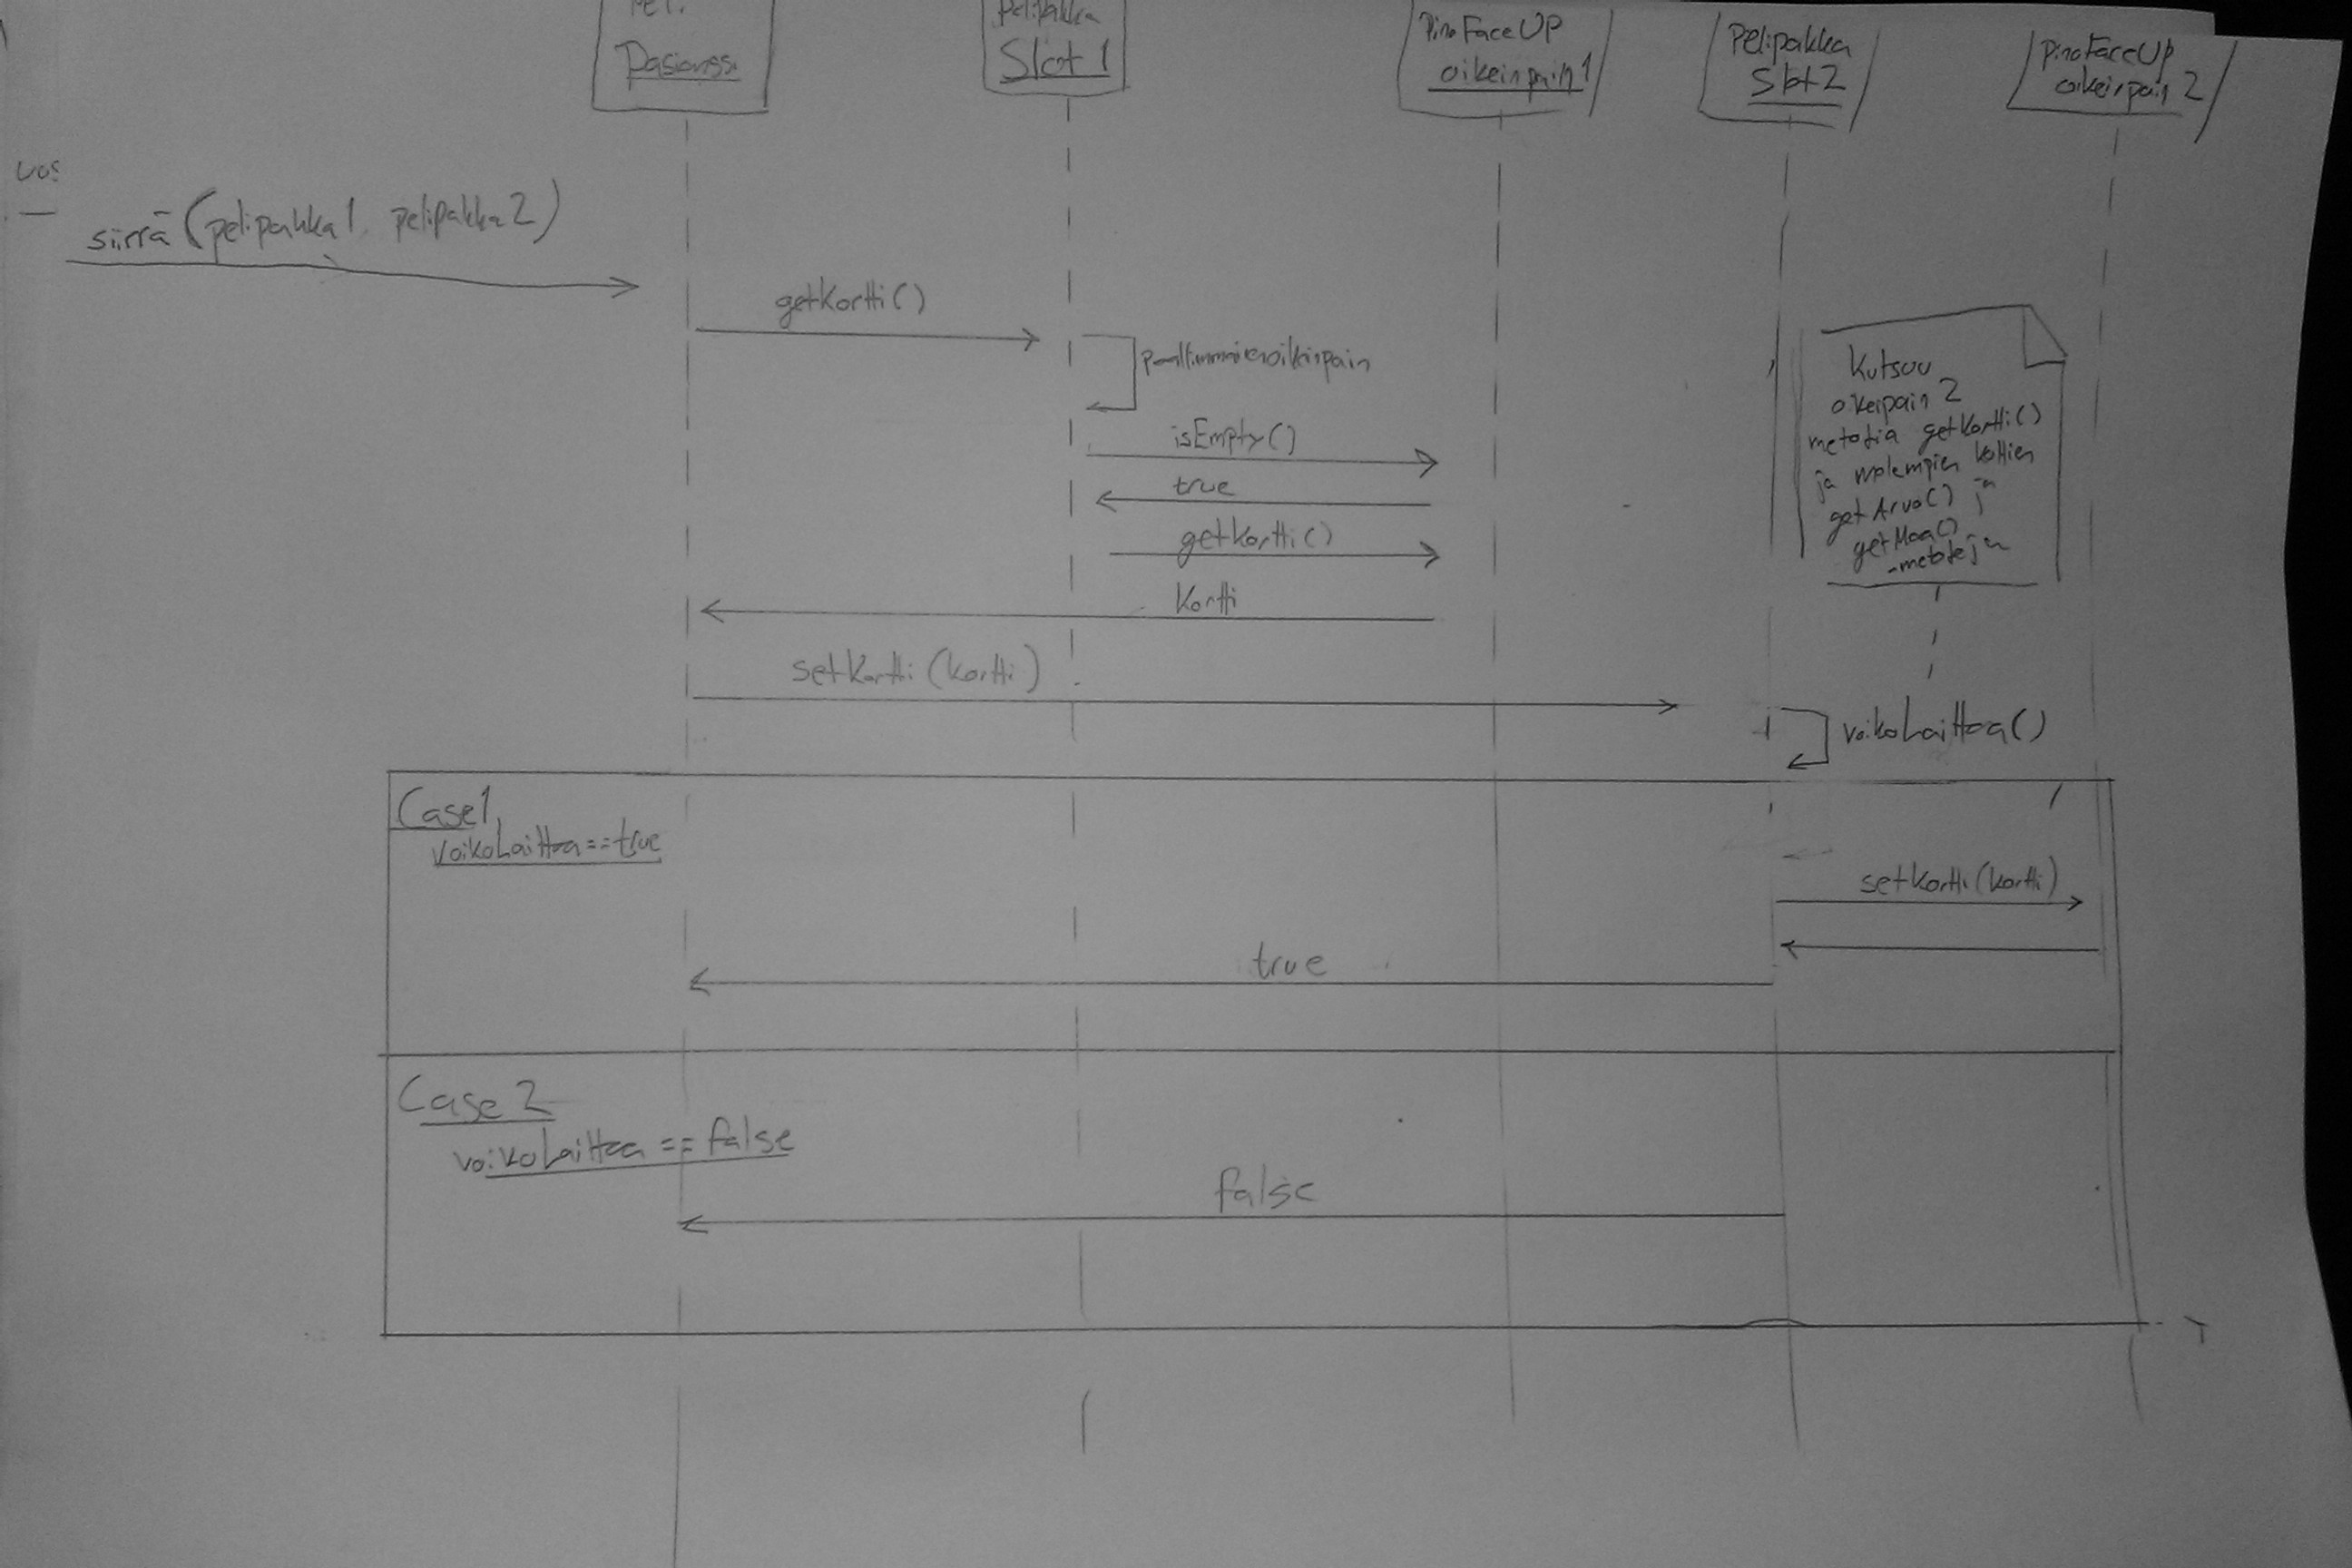 Peli
Pasianssi
Pelipakka
Slot 1
PinoFaceUP
oikeinpäin 1
Pelipakka
Slot 2
PinoFaceUp
oikeinpäin 2
siirrä (pelipakka1, pelipakka2)
getKortti()
isEmpty()
true
getKortti()
Kortti
setKortti (kortti)
Kutsuu
oikeipäin 2
metodia getKortti()
ja molempien korttien
getArvo() ja
getMaa()
-metodeja
voikoLaittaa()
Case1
voikoLaittaa==true
setKortti (kortti)
true
Case 2
voikoLaittaa == false
false